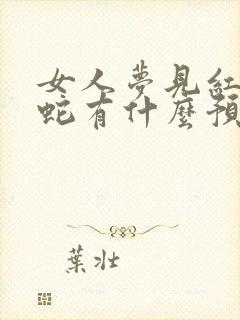 女人夢見紅
蛇有什麼預
葉壯